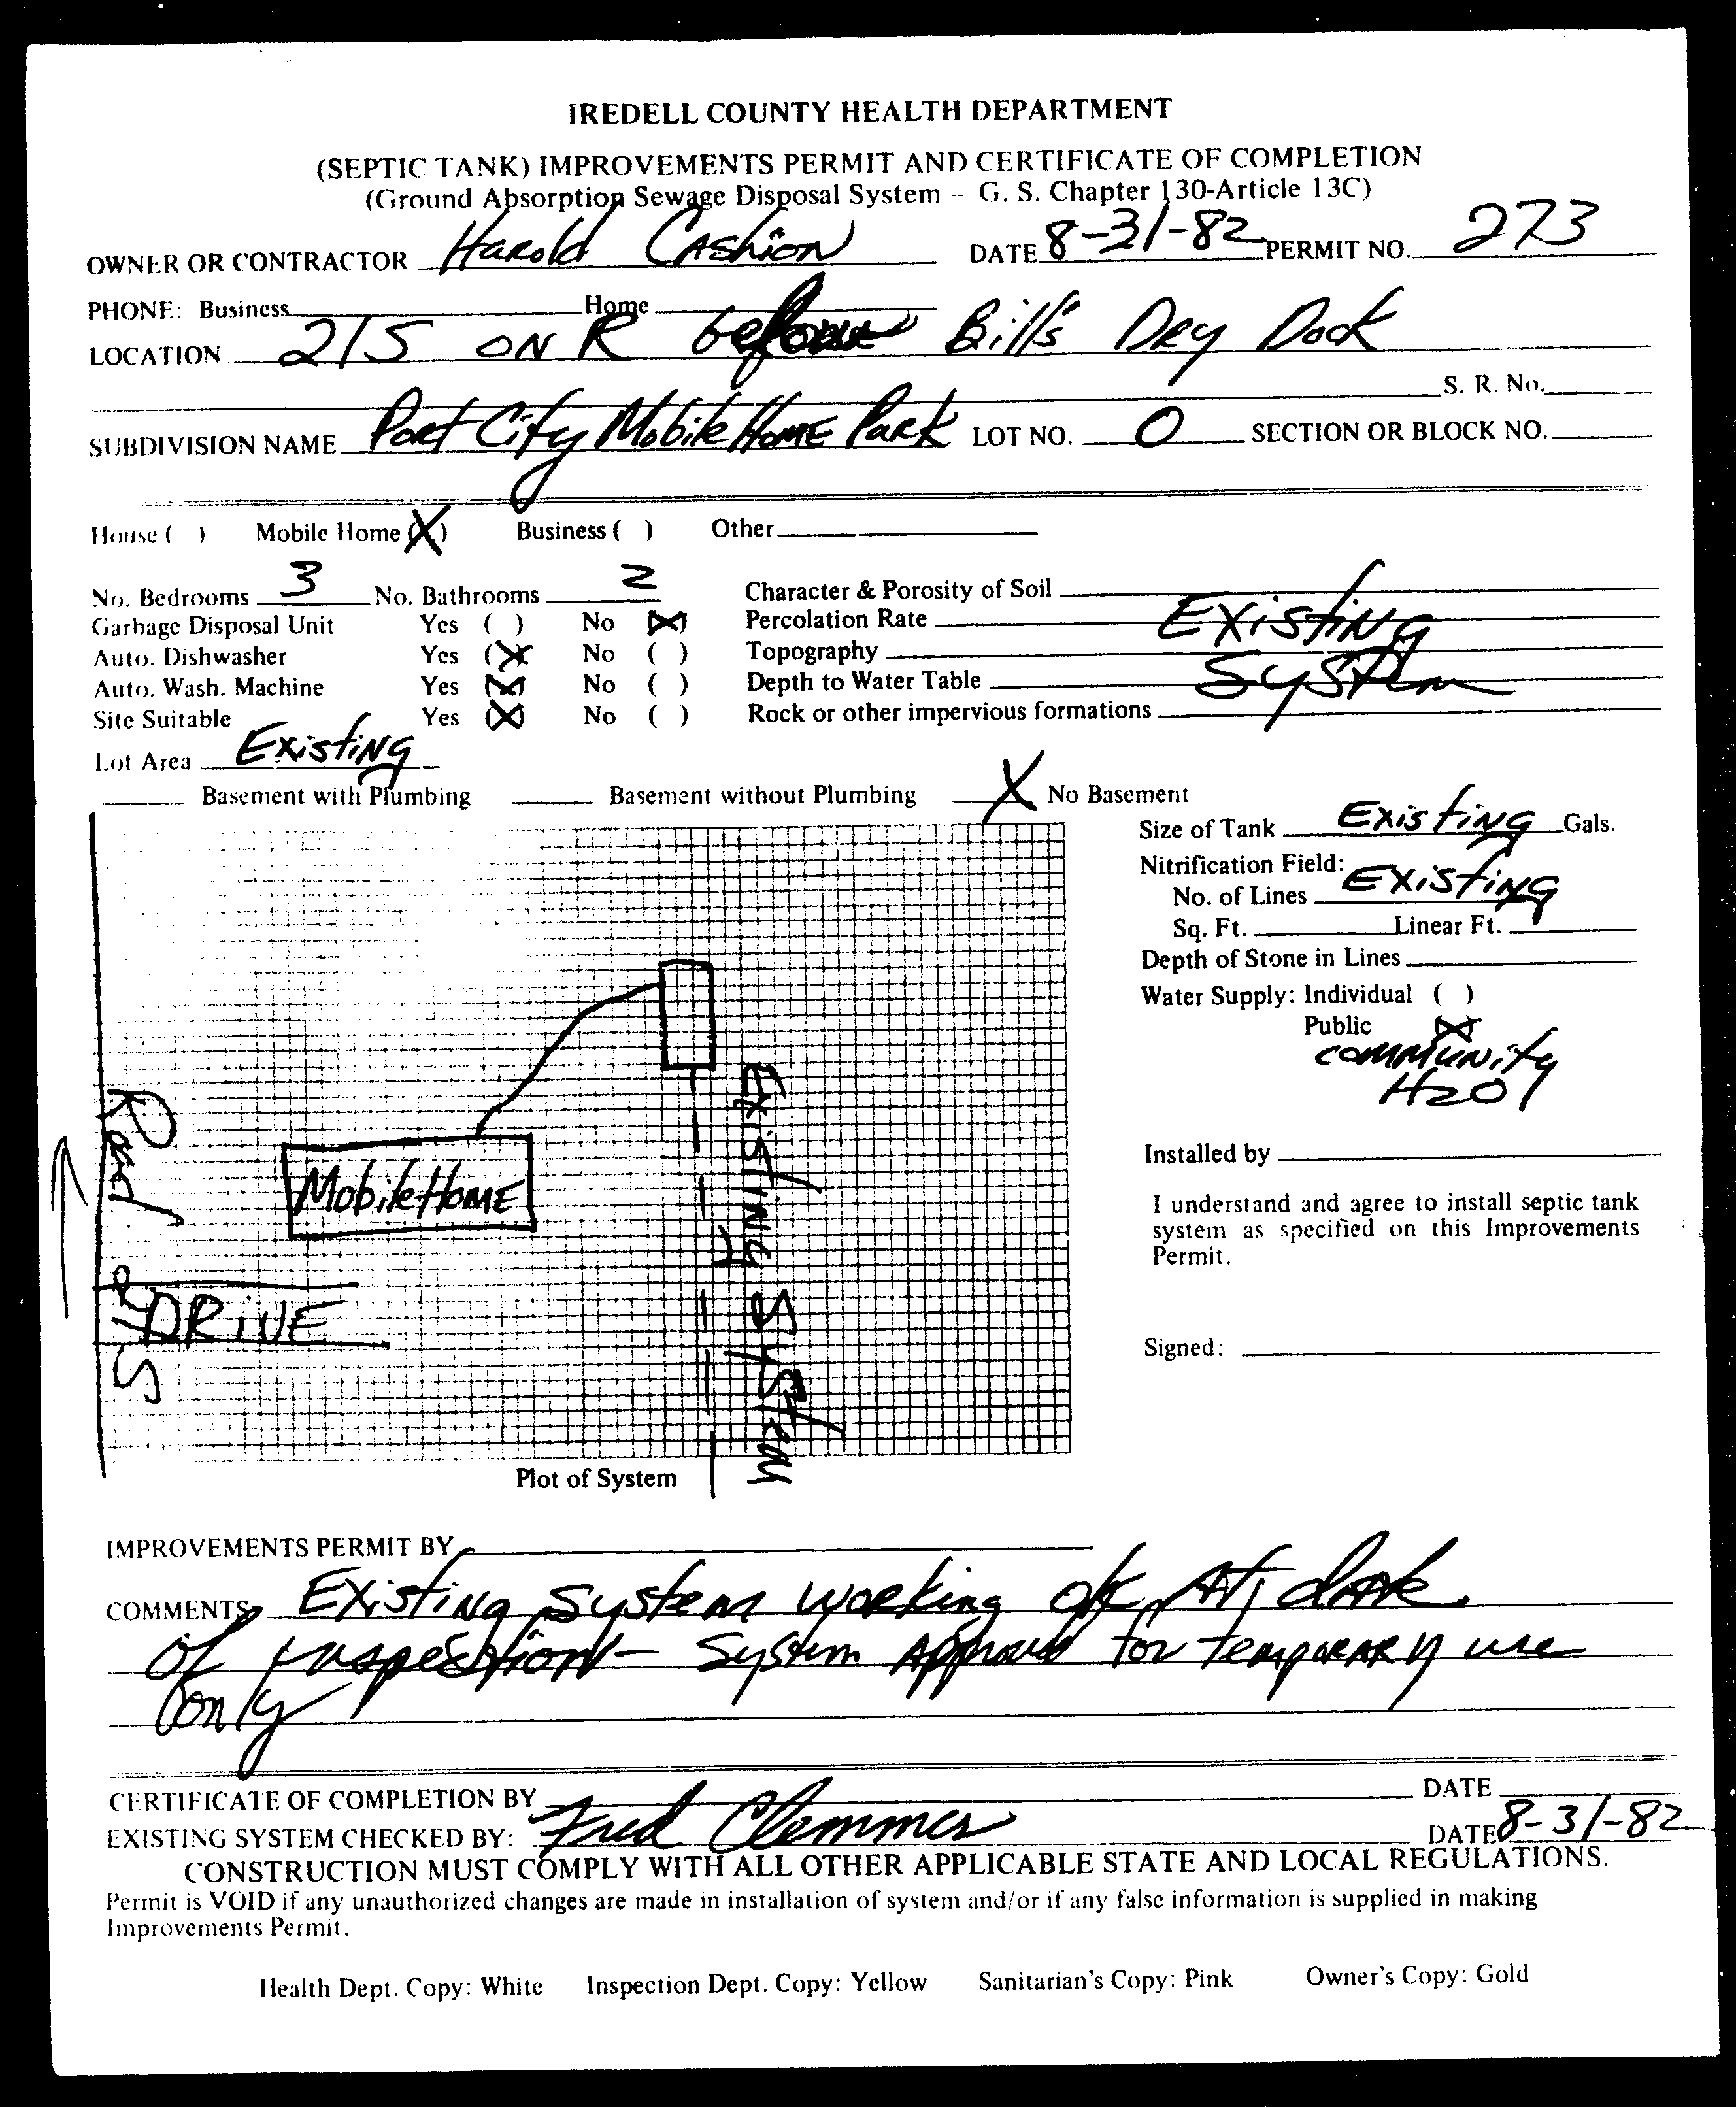 IREDELL COUNTY HEALTH DEPARTMENT
(SEPTIC TANK) IMPROVEMENTS PERMIT AND CERTIFICATE OF COMPLETION
(Ground Absorption Sewage Disposal System -- G. S. Chapter 130-Article 13C)
OWNER OR CONTRACTOR Harold Cashion DATE 8-31-82 PERMIT NO. 273
PHONE: Business Home
LOCATION 21S ON R before Bill's Dry Dock
S. R. No.
SUBDIVISION NAME Port City Mobile Home Park LOT NO. O SECTION OR BLOCK NO.
House ( ) Mobile Home (X) Business ( ) Other
No. Bedrooms 3 No. Bathrooms 2 Character & Porosity of Soil
Garbage Disposal Unit Yes ( ) No (X) Percolation Rate Existing
Auto. Dishwasher Yes (X) No ( ) Topography
Auto. Wash. Machine Yes (X) No ( ) Depth to Water Table System
Site Suitable Yes (X) No ( ) Rock or other impervious formations
Lot Area Existing
Basement with Plumbing Basement without Plumbing X No Basement
Size of Tank Existing Gals.
Nitrification Field:
No. of Lines Existing
Sq. Ft. Linear Ft.
Depth of Stone in Lines
Water Supply: Individual ( )
Public (X)
community
H2O
Road
Mobile Home
DRIVE
Existing System
Installed by
I understand and agree to install septic tank
system as specified on this Improvements
Permit.
Signed:
Plot of System
IMPROVEMENTS PERMIT BY
COMMENTS Existing system working ok At date
of inspection - System Approved for temporary use
only
CERTIFICATE OF COMPLETION BY DATE
EXISTING SYSTEM CHECKED BY: Fred Clemmer DATE 8-31-82
CONSTRUCTION MUST COMPLY WITH ALL OTHER APPLICABLE STATE AND LOCAL REGULATIONS.
Permit is VOID if any unauthorized changes are made in installation of system and/or if any false information is supplied in making
Improvements Permit.
Health Dept. Copy: White Inspection Dept. Copy: Yellow Sanitarian's Copy: Pink Owner's Copy: Gold